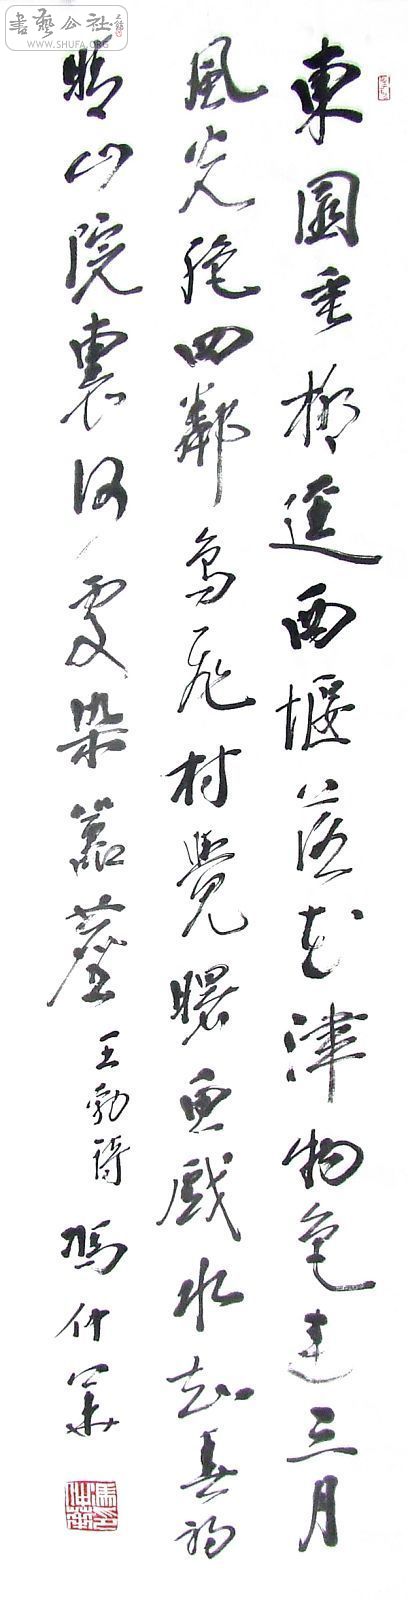 書藝公社
WWW.SHUFA.ORG
東園垂柳逕西堰落花津物色連三月
風光絕四鄰鳥飛村覺曙魚戲水知春初
晴山院裏何處染囂塵王勃詩馮